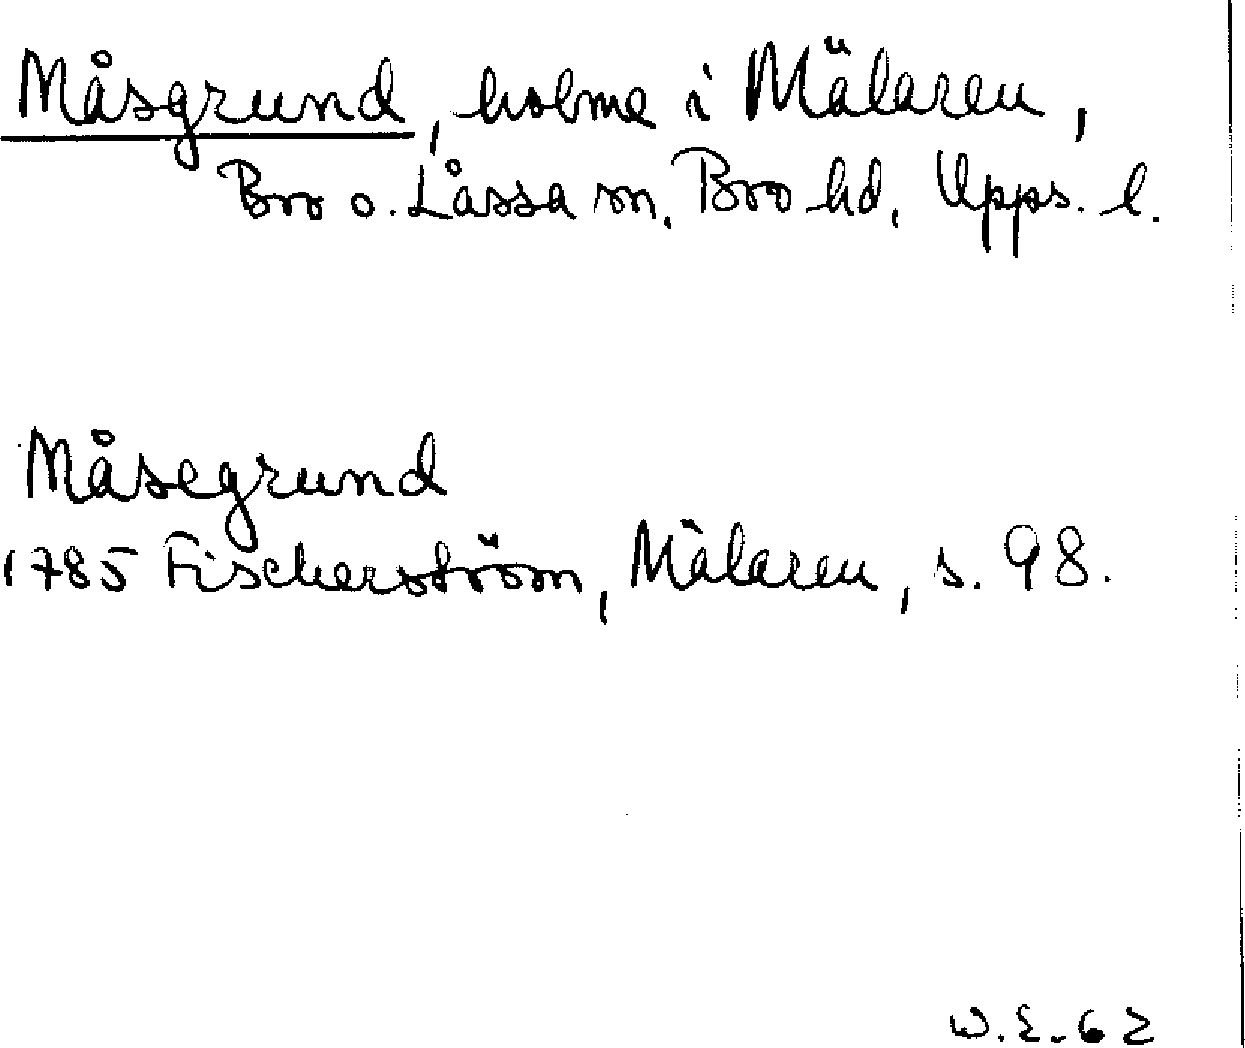 Måsgrund, holme i Mälaren,
Bro o. Låssa sn, Bro hd, Upps. l.
Måsegrund
1785 Fischerström, Mälaren, s. 98.
W.E.62